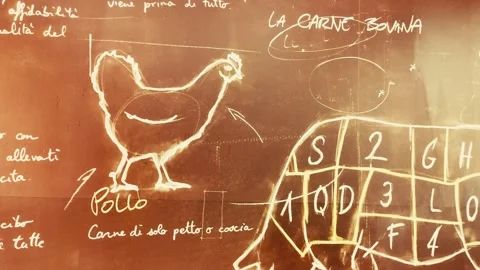 affidabilità
alità del
viene prima di tutto.
LA CARNE BOVINA
o con
allevati
cita.
POLLO
Carne di solo petto o coscia
cibo
è tutte
S 2 G H
A Q D 3 L O
F 4